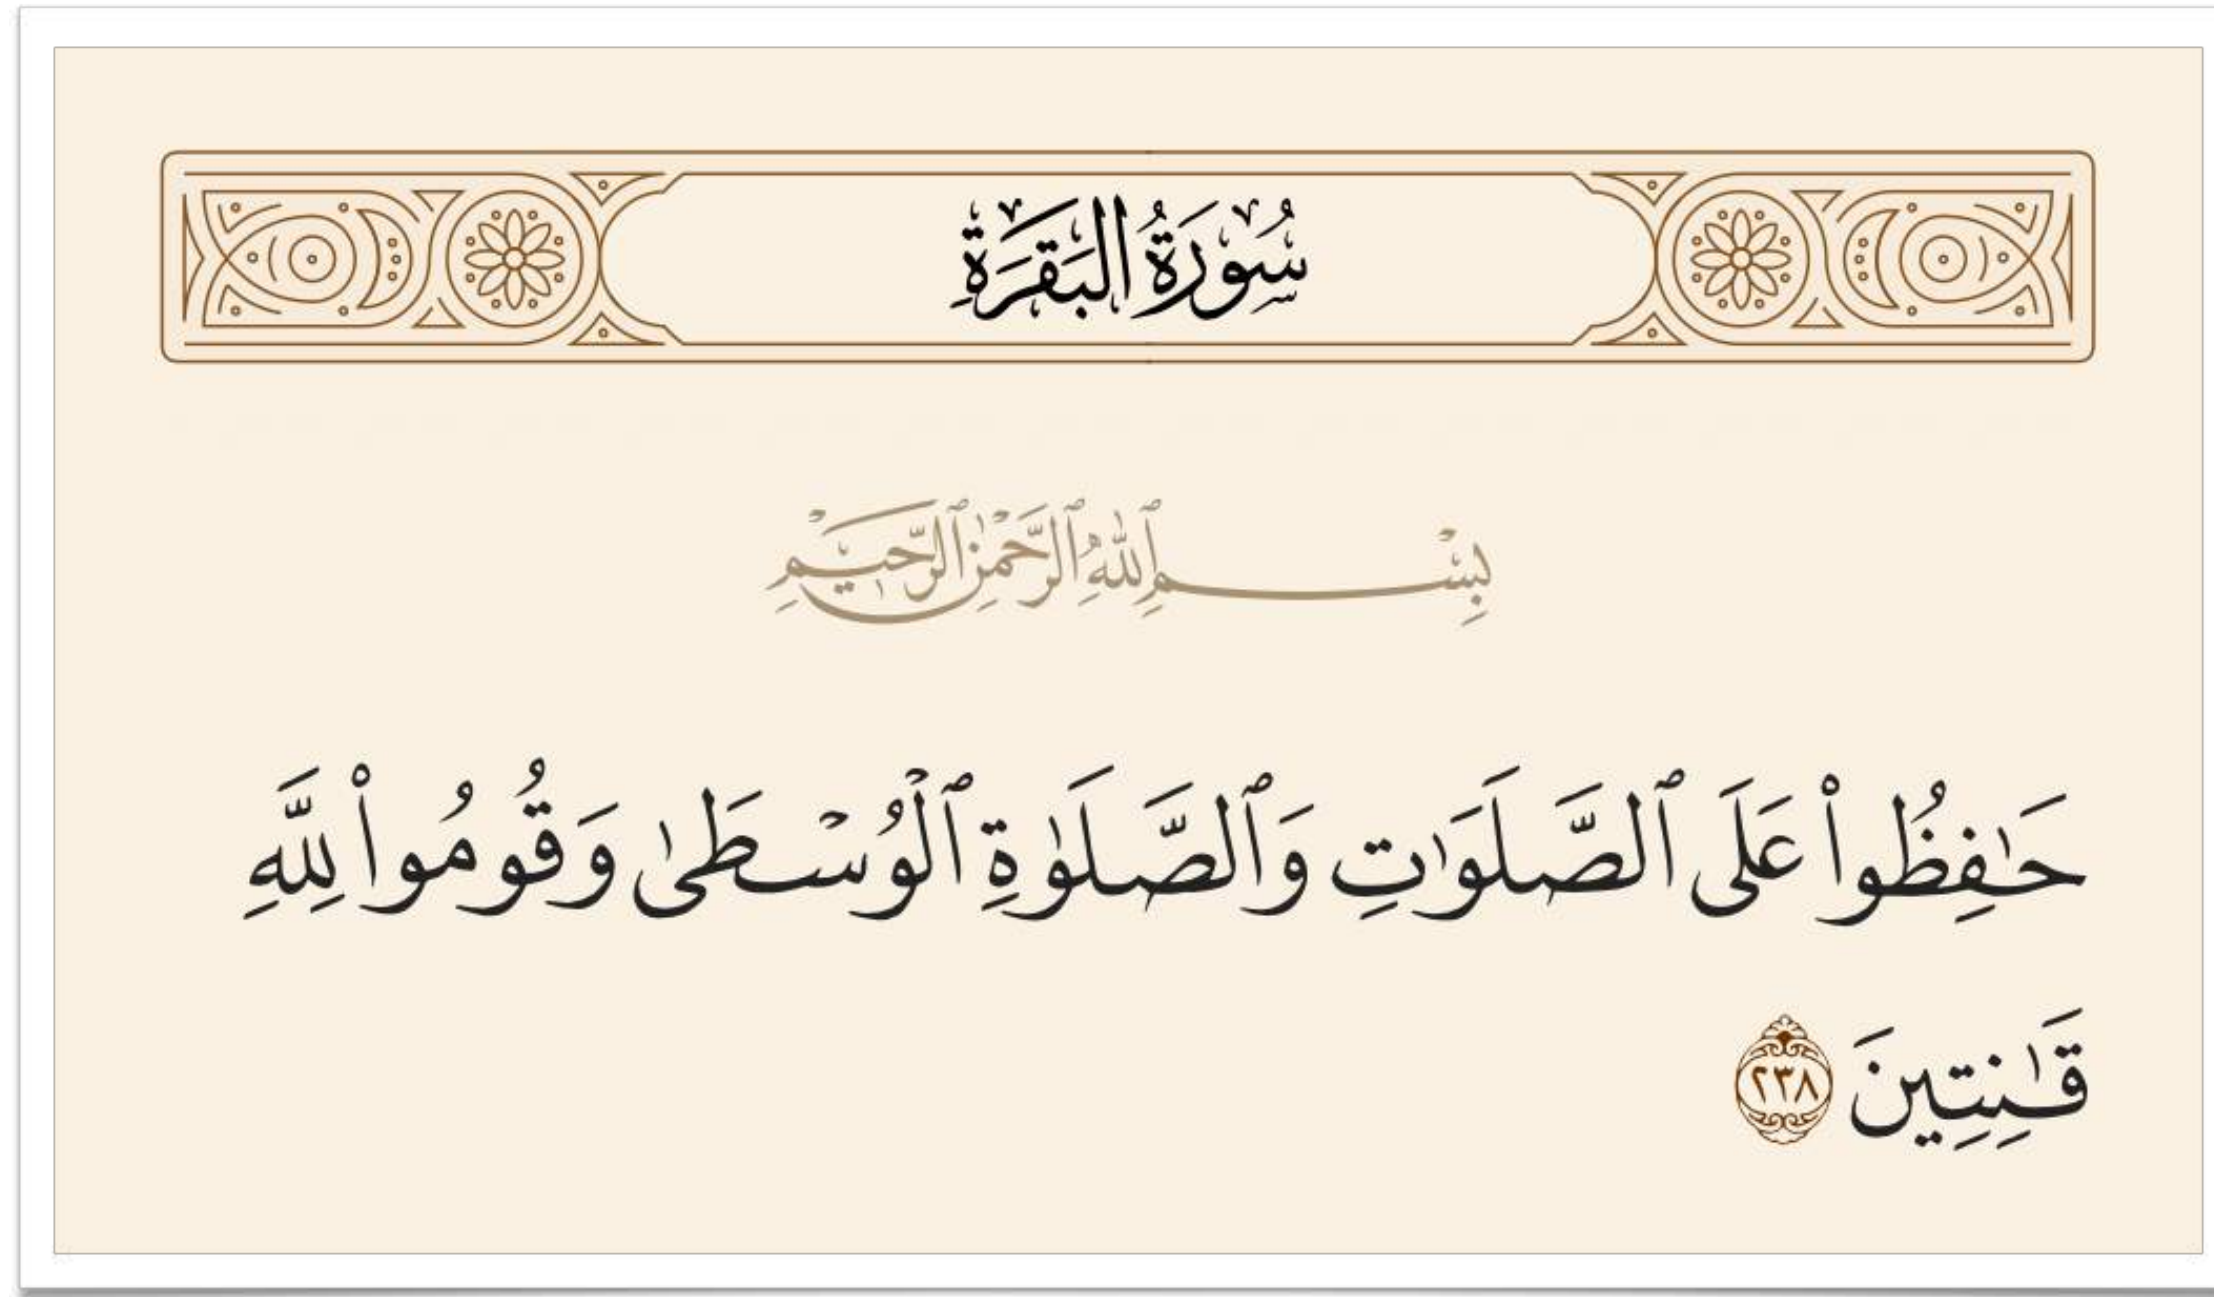 سُورَةُ البَقَرَةِ
بِسْمِ ٱللَّهِ ٱلرَّحْمَٰنِ ٱلرَّحِيمِ
حَـٰفِظُوا۟ عَلَى ٱلصَّلَوَٰتِ وَٱلصَّلَوٰةِ ٱلْوُسْطَىٰ وَقُومُوا۟ لِلَّهِ
قَـٰنِتِينَ ٢٣٨